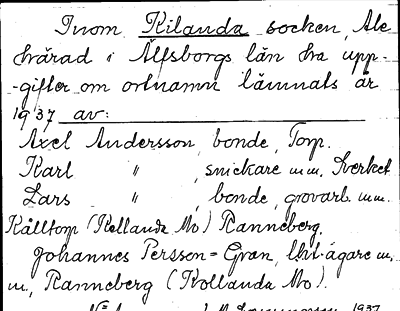 Inom Kilanda socken, Ale
härad i Älfsborgs län ha upp-
-gifter om ortnamn lämnats år
1937 av:
Axel Andersson, bonde, Torp.
Karl " , snickare m.m, Sverket
Lars " , bonde, grovarb. m.m.
Kålltorp (Kollanda Mo) Ranneberg.
Johannes Persson=Gran, ägare m.
m., Ranneberg (Kollanda Mo).
1937